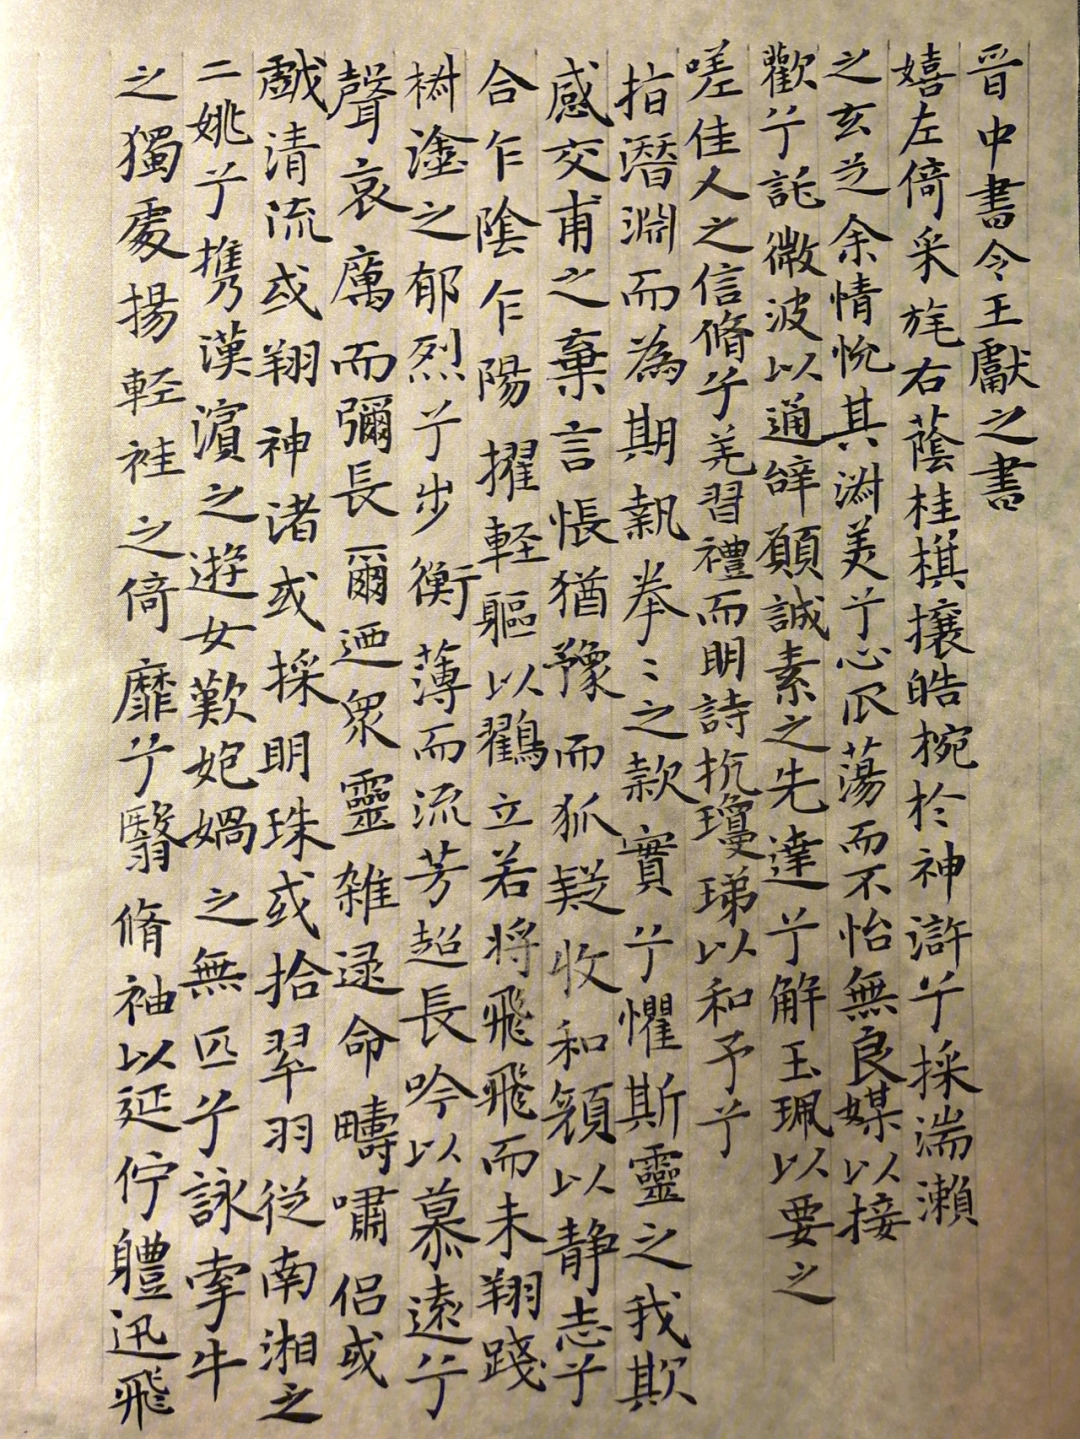 晋中書令王獻之書
嬉左倚采旄右蔭桂棋攘皓椀於神滸兮採湍瀨
之玄芝余情悅其淑美兮心振蕩而不怡無良媒以接
歡兮託微波以通辞願誠素之先達兮解玉珮以要之
嗟佳人之信脩兮羌習禮而明詩抗瓊珶以和予兮
指潛淵而為期執拳〻之款實兮懼斯靈之我欺
感交甫之棄言悵猶豫而狐疑收和顏以静志兮
合乍陰乍陽擢輕軀以鶴立若将飛飛而未翔踐
椒塗之郁烈兮步衡薄而流芳超長吟以慕遠兮
聲哀厲而彌長爾迺衆靈雑逯命疇嘯侶或
戱清流或翔神渚或採明珠或拾翠羽従南湘之
二姚兮携漢濵之遊女歎匏媧之無匹兮詠牽牛
之獨處揚軽袿之倚靡兮翳脩袖以延佇軆迅飛